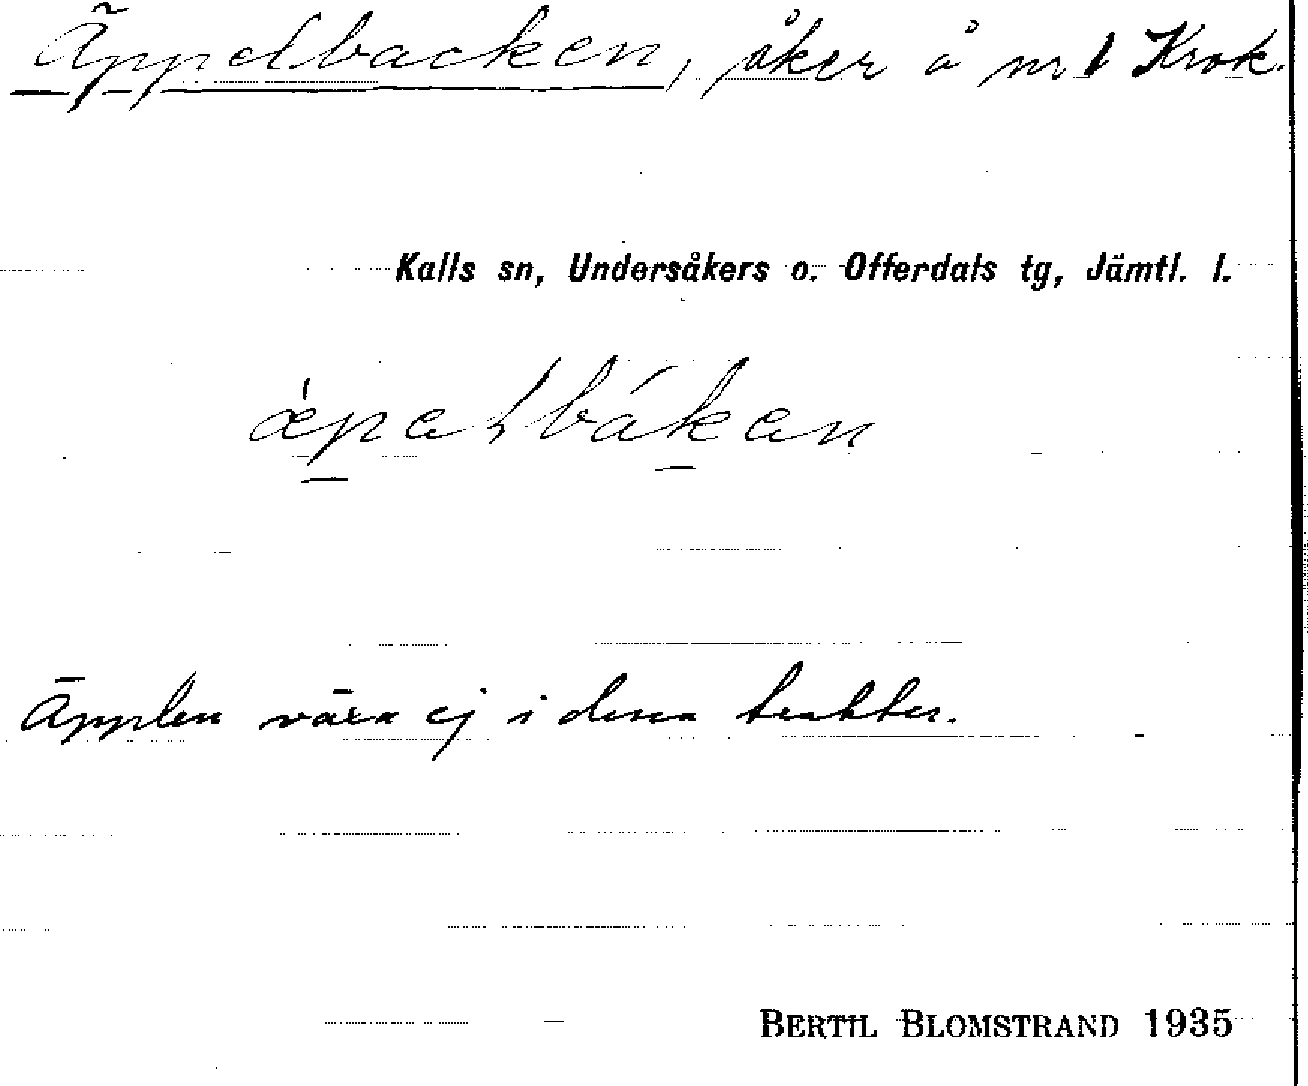 Äppelbacken, åker å nr 1 Krok.
Kalls sn, Undersåkers o. Offerdals tg, Jämtl. l.
æ̀pelbákan
Äpplen växa ej i dessa trakter.
BERTIL BLOMSTRAND 1935